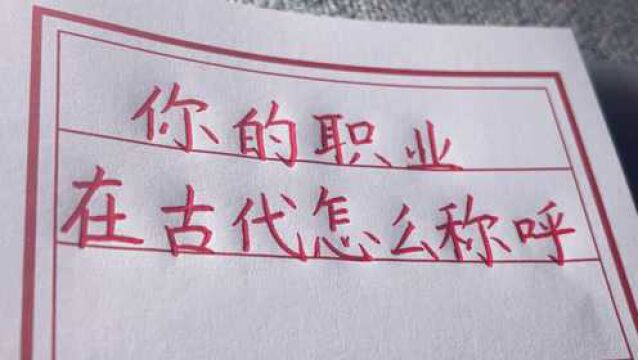 你的职业
在古代怎么称呼